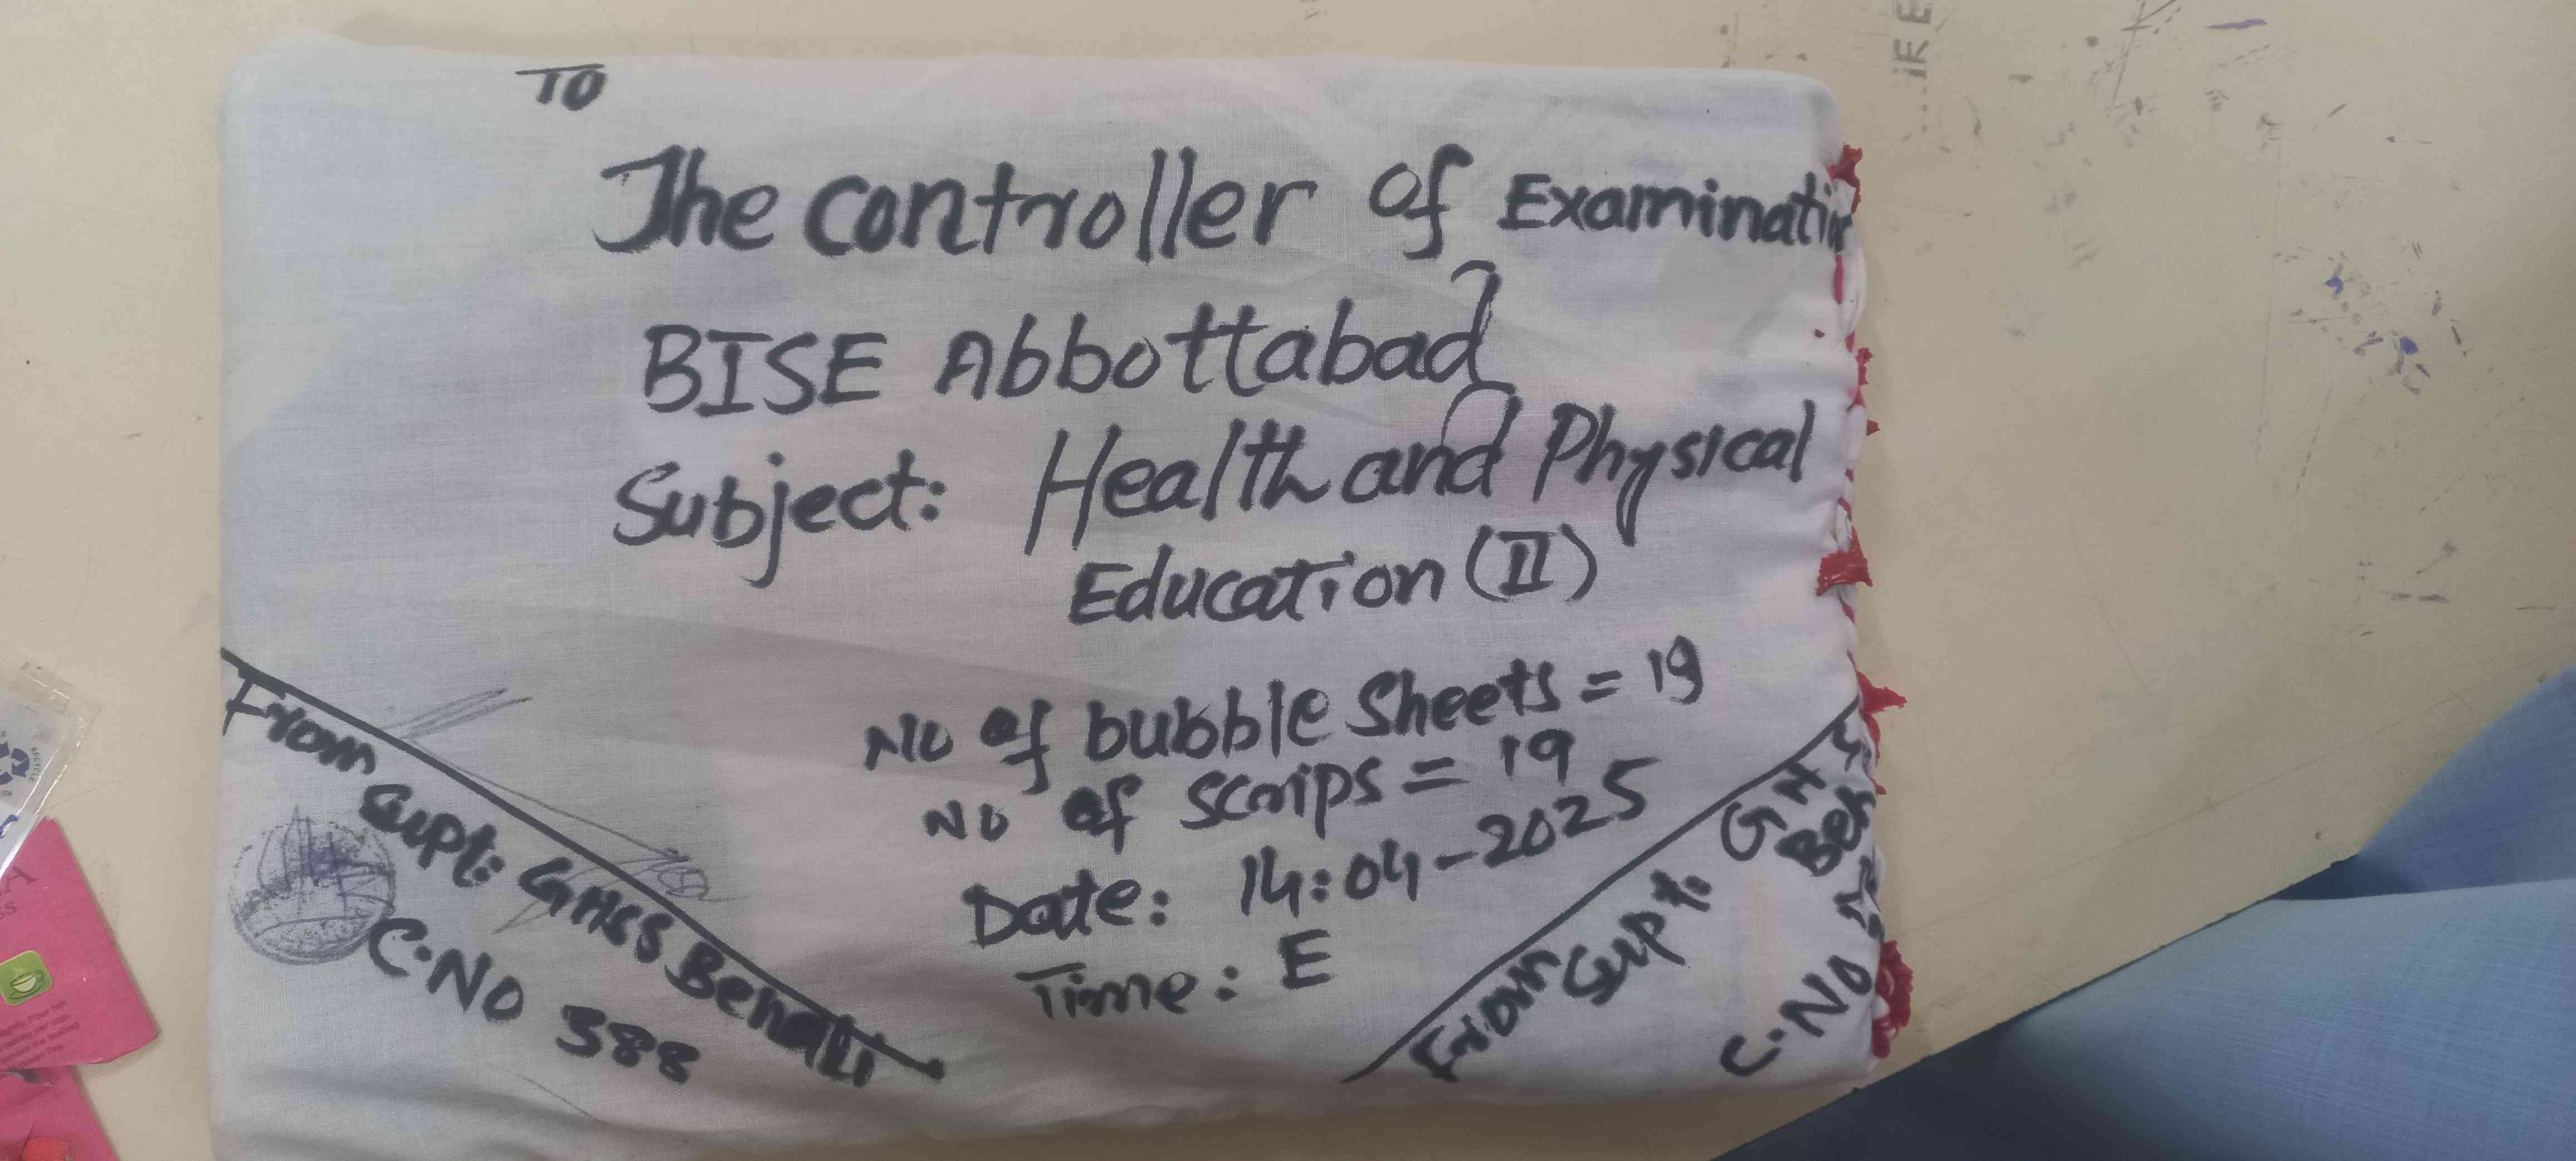 TO
The controller of Examination
BISE Abbottabad
Subject: Health and Physical
Education (II)
No of bubble Sheets = 19
No of scrips = 19
Date: 14:04-2025
Time: E
From Supt: GHSS Behali
C.No 388
From Supt: GH
Beh
C.No
RECYCLE